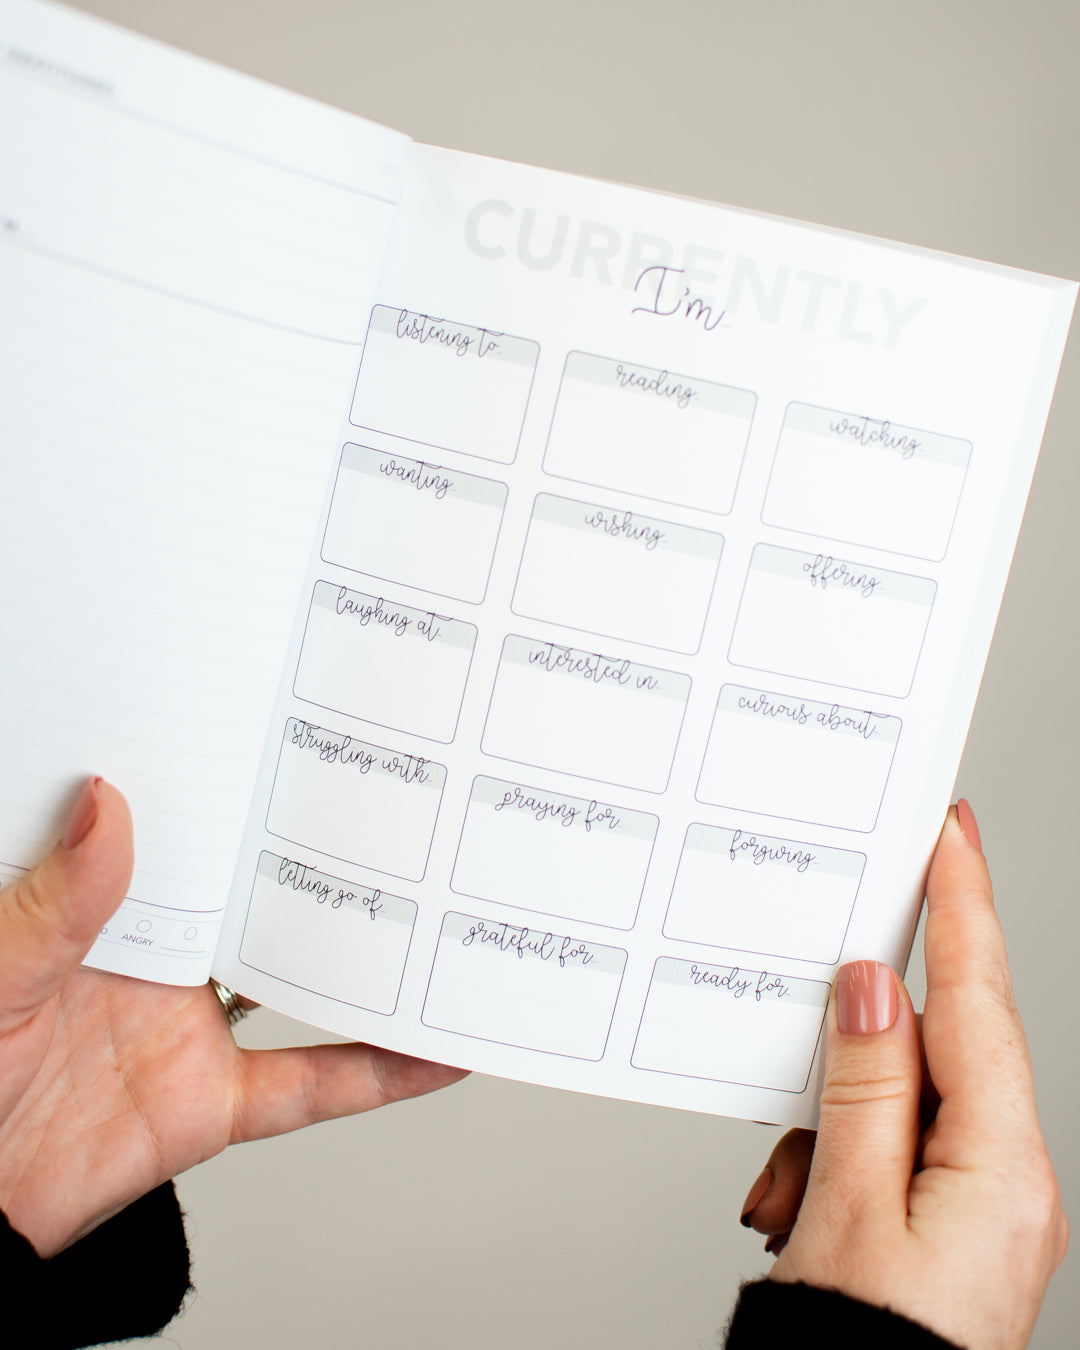 GRATITUDES
ANGRY
CURRENTLY
I'm...
listening to...
reading...
watching...
wanting...
wishing...
offering...
laughing at...
interested in...
curious about...
struggling with...
praying for...
forgiving...
letting go of...
grateful for...
ready for...